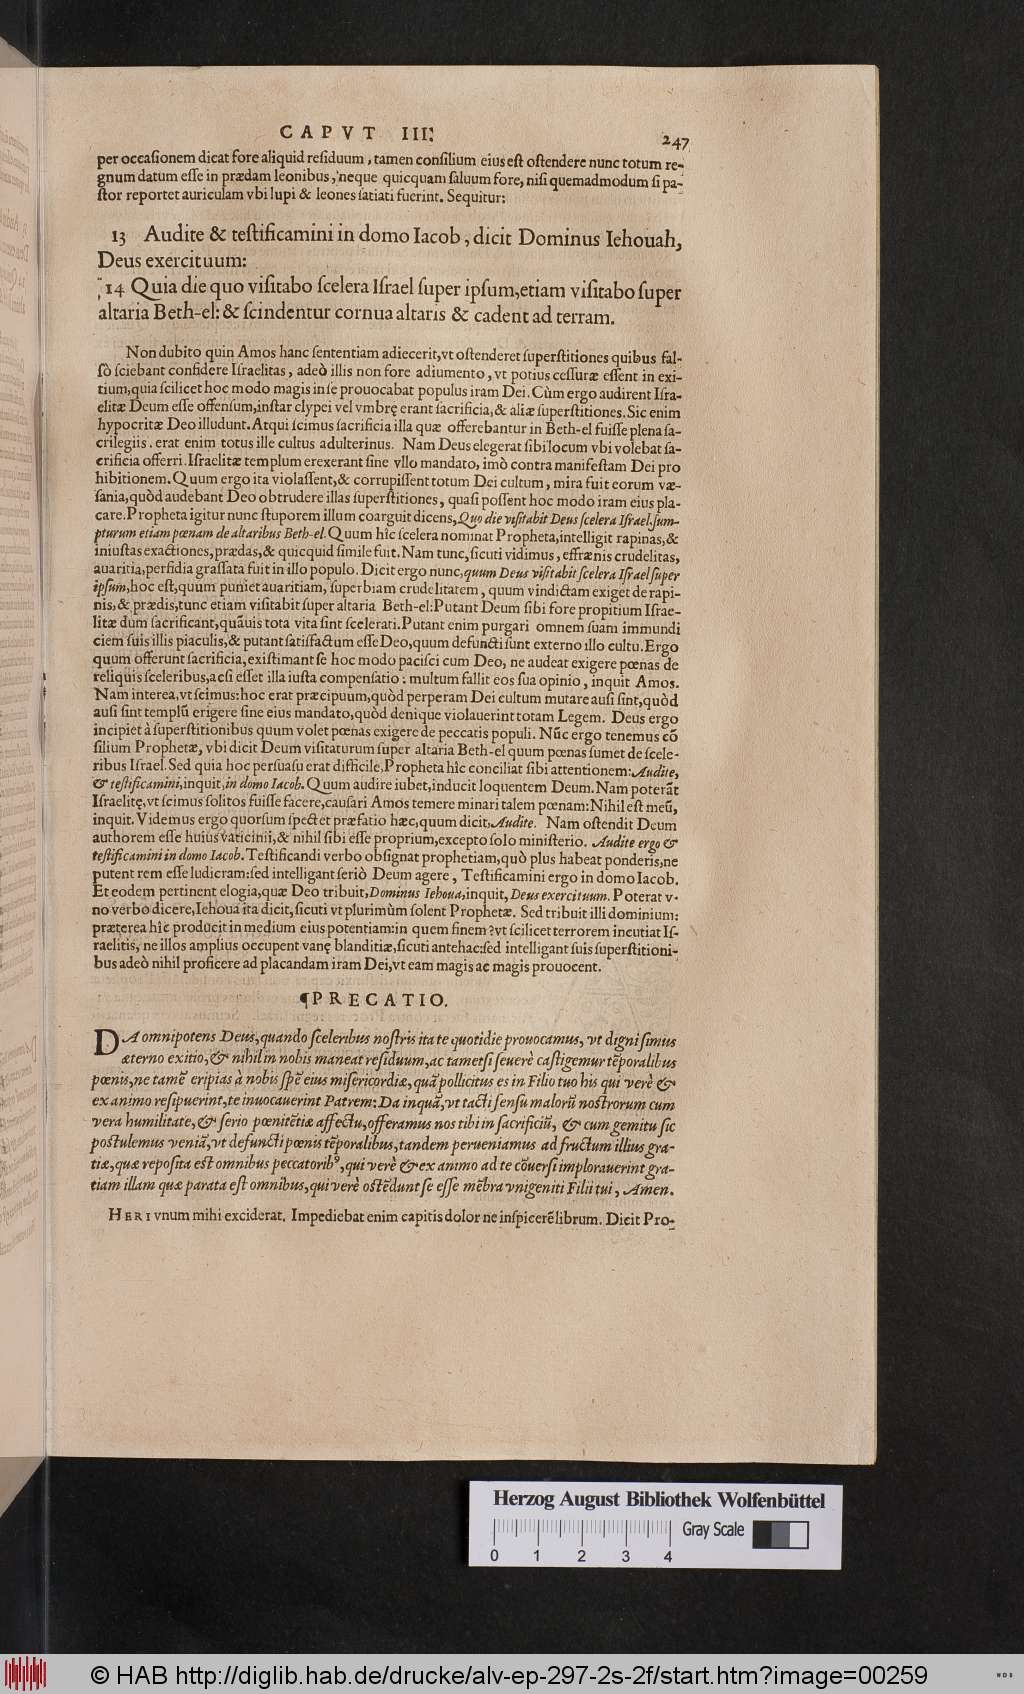 CAPVT III. 247
per occaſionem dicat fore aliquid reſiduum, tamen conſilium eius eſt oſtendere nunc totum re-
gnum datum eſſe in prædam leonibus, neque quicquam ſaluum fore, niſi quemadmodum ſi pa-
ſtor reportet auriculam vbi lupi & leones ſatiati fuerint. Sequitur:
13 Audite & teſtificamini in domo Iacob, dicit Dominus Iehouah,
Deus exercituum:
14 Quia die quo viſitabo ſcelera Iſrael ſuper ipſum, etiam viſitabo ſuper
altaria Beth-el: & ſcindentur cornua altaris & cadent ad terram.
Non dubito quin Amos hanc ſententiam adiecerit, vt oſtenderet ſuperſtitiones quibus fal-
ſò ſciebant confidere Iſraelitas, adeò illis non fore adiumento, vt potius ceſſuræ eſſent in exi-
tium, quia ſcilicet hoc modo magis in ſe prouocabat populus iram Dei. Cùm ergo audirent Iſra-
elitæ Deum eſſe offenſum, inſtar clypei vel vmbrę erant ſacrificia, & aliæ ſuperſtitiones. Sic enim
hypocritæ Deo illudunt. Atqui ſcimus ſacrificia illa quæ offerebantur in Beth-el fuiſſe plena ſa-
crilegiis. erat enim totus ille cultus adulterinus. Nam Deus elegerat ſibi locum vbi volebat ſa-
crificia offerri. Iſraelitæ templum erexerant ſine vllo mandato, imò contra manifeſtam Dei pro
hibitionem. Quum ergo ita violaſſent, & corrupiſſent totum Dei cultum, mira fuit eorum væ-
ſania, quòd audebant Deo obtrudere illas ſuperſtitiones, quaſi poſſent hoc modo iram eius pla-
care. Propheta igitur nunc ſtuporem illum coarguit dicens, Quo die viſitabit Deus ſcelera Iſrael, ſum-
pturum etiam pœnam de altaribus Beth-el. Quum hîc ſcelera nominat Propheta, intelligit rapinas, &
iniuſtas exactiones, prædas, & quicquid ſimile fuit. Nam tunc, ſicuti vidimus, effrænis crudelitas,
auaritia, perfidia graſſata fuit in illo populo. Dicit ergo nunc, quum Deus viſitabit ſcelera Iſrael ſuper
ipſum, hoc eſt, quum puniet auaritiam, ſuperbiam crudelitatem, quum vindictam exiget de rapi-
nis, & prædis, tunc etiam viſitabit ſuper altaria Beth-el: Putant Deum ſibi fore propitium Iſrae-
litæ dum ſacrificant, quāuis tota vita ſint ſcelerati. Putant enim purgari omnem ſuam immundi
ciem ſuis illis piaculis, & putant ſatiſfactum eſſe Deo, quum defuncti ſunt externo illo cultu. Ergo
quum offerunt ſacrificia, exiſtimant ſe hoc modo paciſci cum Deo, ne audeat exigere pœnas de
reliquis ſceleribus, acſi eſſet illa iuſta compenſatio: multum fallit eos ſua opinio, inquit Amos.
Nam interea, vt ſcimus: hoc erat præcipuum, quòd perperam Dei cultum mutare auſi ſint, quòd
auſi ſint templū erigere ſine eius mandato, quòd denique violauerint totam Legem. Deus ergo
incipiet à ſuperſtitionibus quum volet pœnas exigere de peccatis populi. Nūc ergo tenemus cō
ſilium Prophetæ, vbi dicit Deum viſitaturum ſuper altaria Beth-el quum pœnas ſumet de ſcele-
ribus Iſrael. Sed quia hoc perſuaſu erat difficile, Propheta hîc conciliat ſibi attentionem: Audite,
& teſtificamini, inquit, in domo Iacob. Quum audire iubet, inducit loquentem Deum. Nam poterāt
Iſraelitę, vt ſcimus ſolitos fuiſſe facere, cauſari Amos temere minari talem pœnam: Nihil eſt meū,
inquit. Videmus ergo quorſum ſpectet præfatio hæc, quum dicit, Audite. Nam oſtendit Deum
authorem eſſe huius vaticinii, & nihil ſibi eſſe proprium, excepto ſolo miniſterio. Audite ergo &
teſtificamini in domo Iacob. Teſtificandi verbo obſignat prophetiam, quò plus habeat ponderis, ne
putent rem eſſe ludicram: ſed intelligant ſeriò Deum agere, Teſtificamini ergo in domo Iacob.
Et eodem pertinent elogia, quæ Deo tribuit, Dominus Iehoua, inquit, Deus exercituum. Poterat v-
no verbo dicere, Iehoua ita dicit, ſicuti vt plurimùm ſolent Prophetæ. Sed tribuit illi dominium:
præterea hîc producit in medium eius potentiam: in quem finem? vt ſcilicet terrorem incutiat Iſ-
raelitis, ne illos amplius occupent vanę blanditiæ, ſicuti antehac: ſed intelligant ſuis ſuperſtitioni-
bus adeò nihil proficere ad placandam iram Dei, vt eam magis ac magis prouocent.
¶PRECATIO.
DA omnipotens Deus, quando ſceleribus noſtris ita te quotidie prouocamus, vt digni ſimus
æterno exitio, & nihil in nobis maneat reſiduum, ac tametſi ſeuerè caſtigemur tēporalibus
pœnis, ne tamē eripias à nobis ſpē eius miſericordiæ, quā pollicitus es in Filio tuo his qui verè &
ex animo reſipuerint, te inuocauerint Patrem: Da inquā, vt tacti ſenſu malorū noſtrorum cum
vera humilitate, & ſerio pœnitētiæ affectu, offeramus nos tibi in ſacrificiū, & cum gemitu ſic
poſtulemus veniā, vt defuncti pœnis tēporalibus, tandem perueniamus ad fructum illius gra-
tiæ, quæ repoſita eſt omnibus peccatorib⁹, qui verè & ex animo ad te cōuerſi implorauerint gra-
tiam illam quæ parata eſt omnibus, qui verè oſtēdunt ſe eſſe mēbra vnigeniti Filii tui, Amen.
HERI vnum mihi exciderat. Impediebat enim capitis dolor ne inſpicerē librum. Dicit Pro-
Herzog August Bibliothek Wolfenbüttel
Gray Scale
0 1 2 3 4
© HAB http://diglib.hab.de/drucke/alv-ep-297-2s-2f/start.htm?image=00259